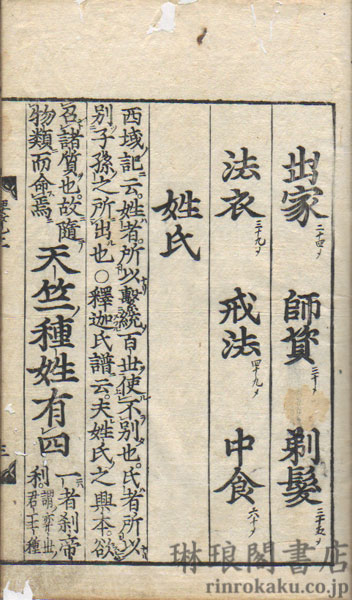 出家 二十四ヲ 師資 三十ヲ 剃髮 三十五ヲ
法衣 三十九ヲ 戒法 四十九ヲ 中食 六十ヲ
姓氏
西域記云姓者所以繫統百世使不別也氏者所以
別子孫之所出也○釋迦氏譜云夫姓氏之興本欲
召諸質也故隨
物類而命焉
天竺種姓有四
一者刹帝
利
謂奕世
君王種
琳琅閣書店
rinrokaku.co.jp